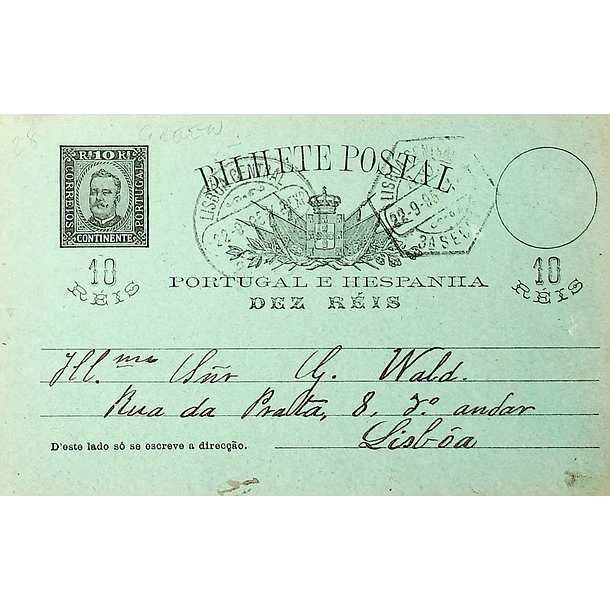 GREEN
BILHETE POSTAL
R.ˢ 10 R.ˢ
CORREIOS
PORTUGAL
CONTINENTE
LISBOA CENTRAL
22-9-95
LISBOA CENTRAL
22-9-95
3ª SEC
10
RÉIS
10
RÉIS
PORTUGAL E HESPANHA
DEZ RÉIS
Ill.mo Snr G. Wald.
Rua da Prata, 8, 3º andar
Lisbôa
D'este lado só se escreve a direcção.